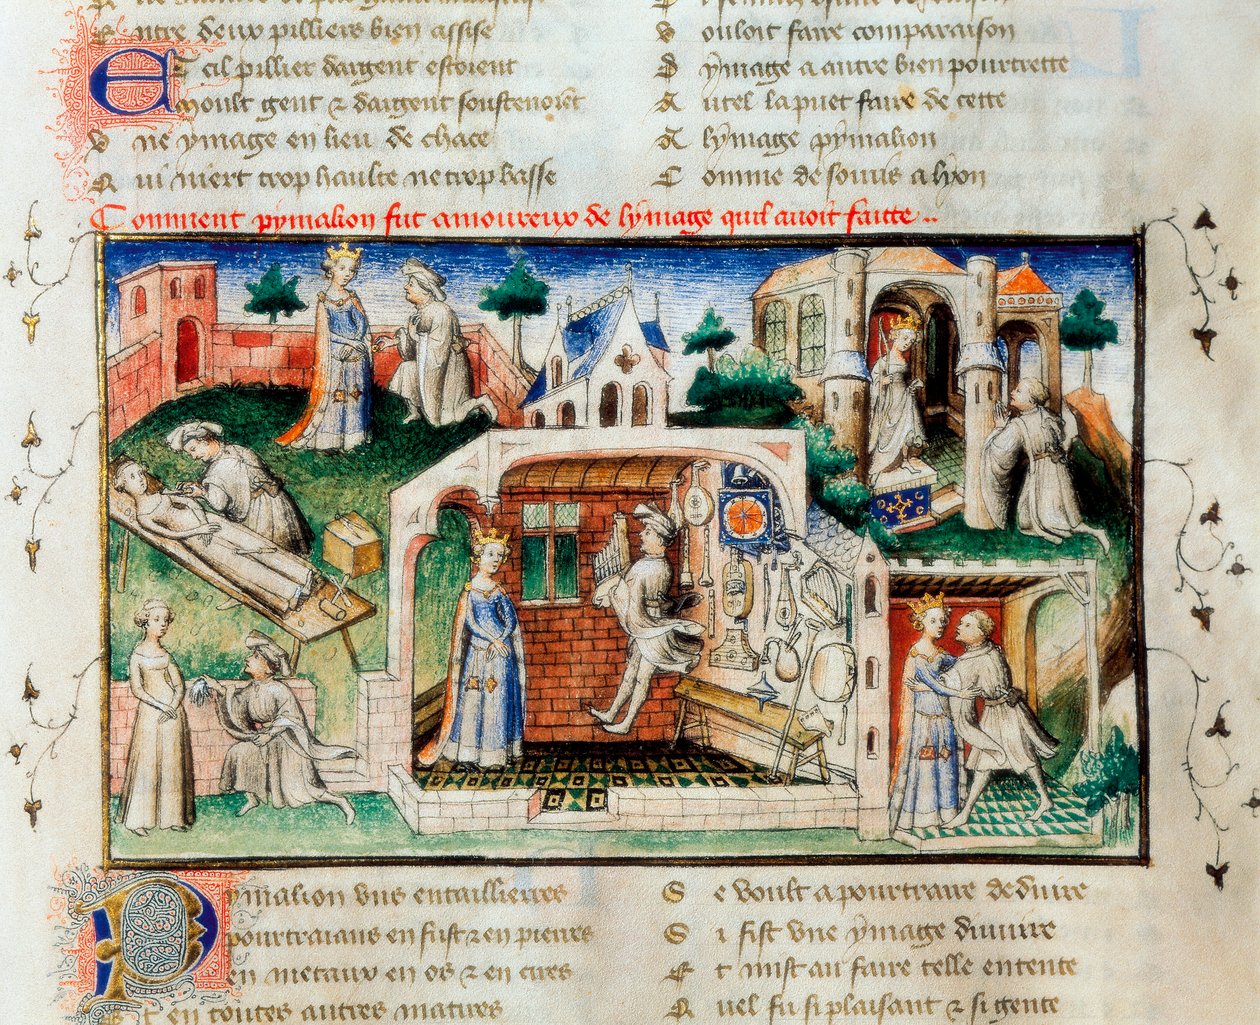 Entre deux pilliers bien assise
Et cil pillier dargent estoient
Moult gent & dargent soustenoiēt
Vne ymage en lieu de chace
Qui niert trop haulte ne trop basse
Vouloit faire comparaison
Dymage a autre bien pourtrette
Autel la puet faire de cette
A lymage pymalion
Comme de souris a lyon
Comment pymalion fut amoureux de lymage quil auoit faitte..
Pymalion vns entaillieres
pourtraians en fust & en pierres
en metaux en os & en cires
Et en toutes autres matires
Se voult a pourtraire deduire
Si fist vne ymage diuuire
Et mist au faire telle entente
Quel fu si plaisant & si gente